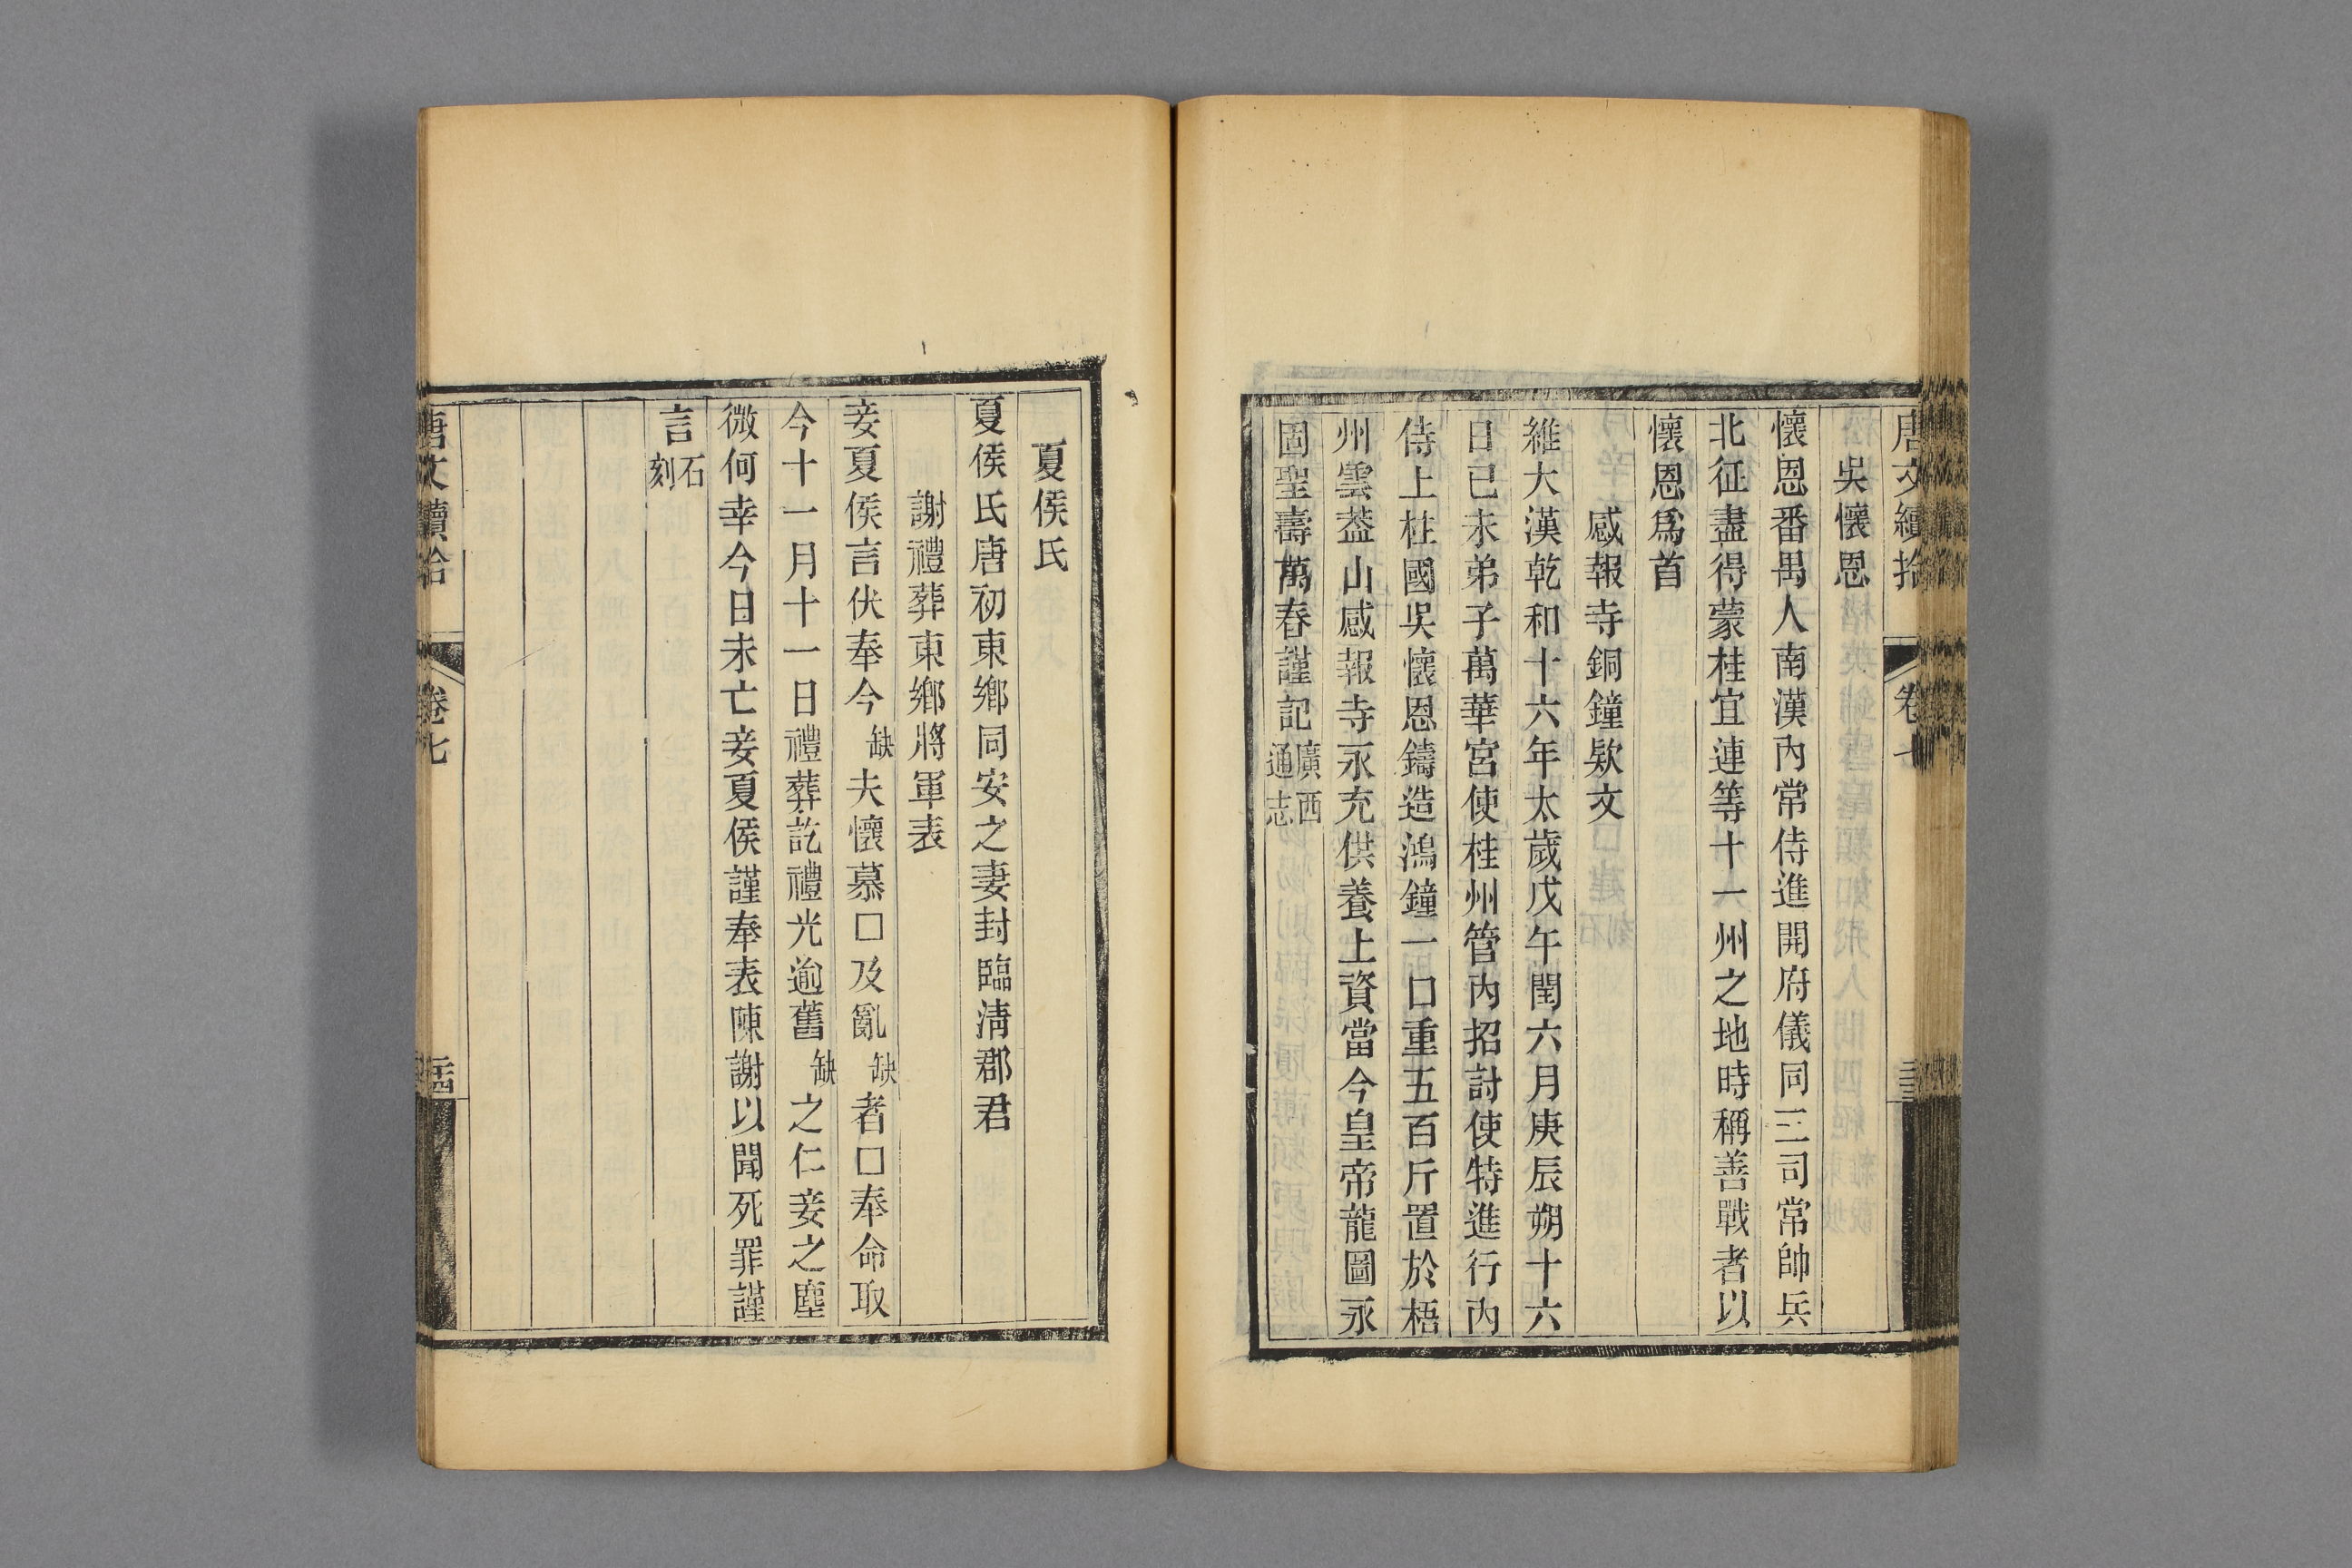 唐文續拾 卷七
吳懷恩
懷恩番禺人南漢內常侍進開府儀同三司常帥兵
北征盡得蒙桂宜連等十一州之地時稱善戰者以
懷恩爲首
感報寺銅鐘欵文
維大漢乾和十六年太歲戊午閏六月庚辰朔十六
日已未弟子萬華宮使桂州管內招討使特進行內
侍上柱國吳懷恩鑄造鴻鐘一口重五百斤置於梧
州雲葢山感報寺永充供養上資當今皇帝龍圖永
固聖壽萬春謹記廣西通志
夏侯氏
夏侯氏唐初東鄉同安之妻封臨淸郡君
謝禮葬東鄉將軍表
妾夏侯言伏奉今缺夫懷慕□及亂缺者□奉命取
今十一月十一日禮葬訖禮光逾舊缺之仁妾之塵
微何幸今日未亡妾夏侯謹奉表陳謝以聞死罪謹
言石刻
唐文續拾 卷七